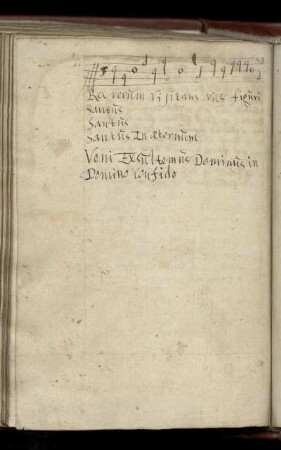 Rex rerum visitans vas figuli
Santus
Santus
Santus In æternum
Veni Exultemus Dominus in
Domino Confido